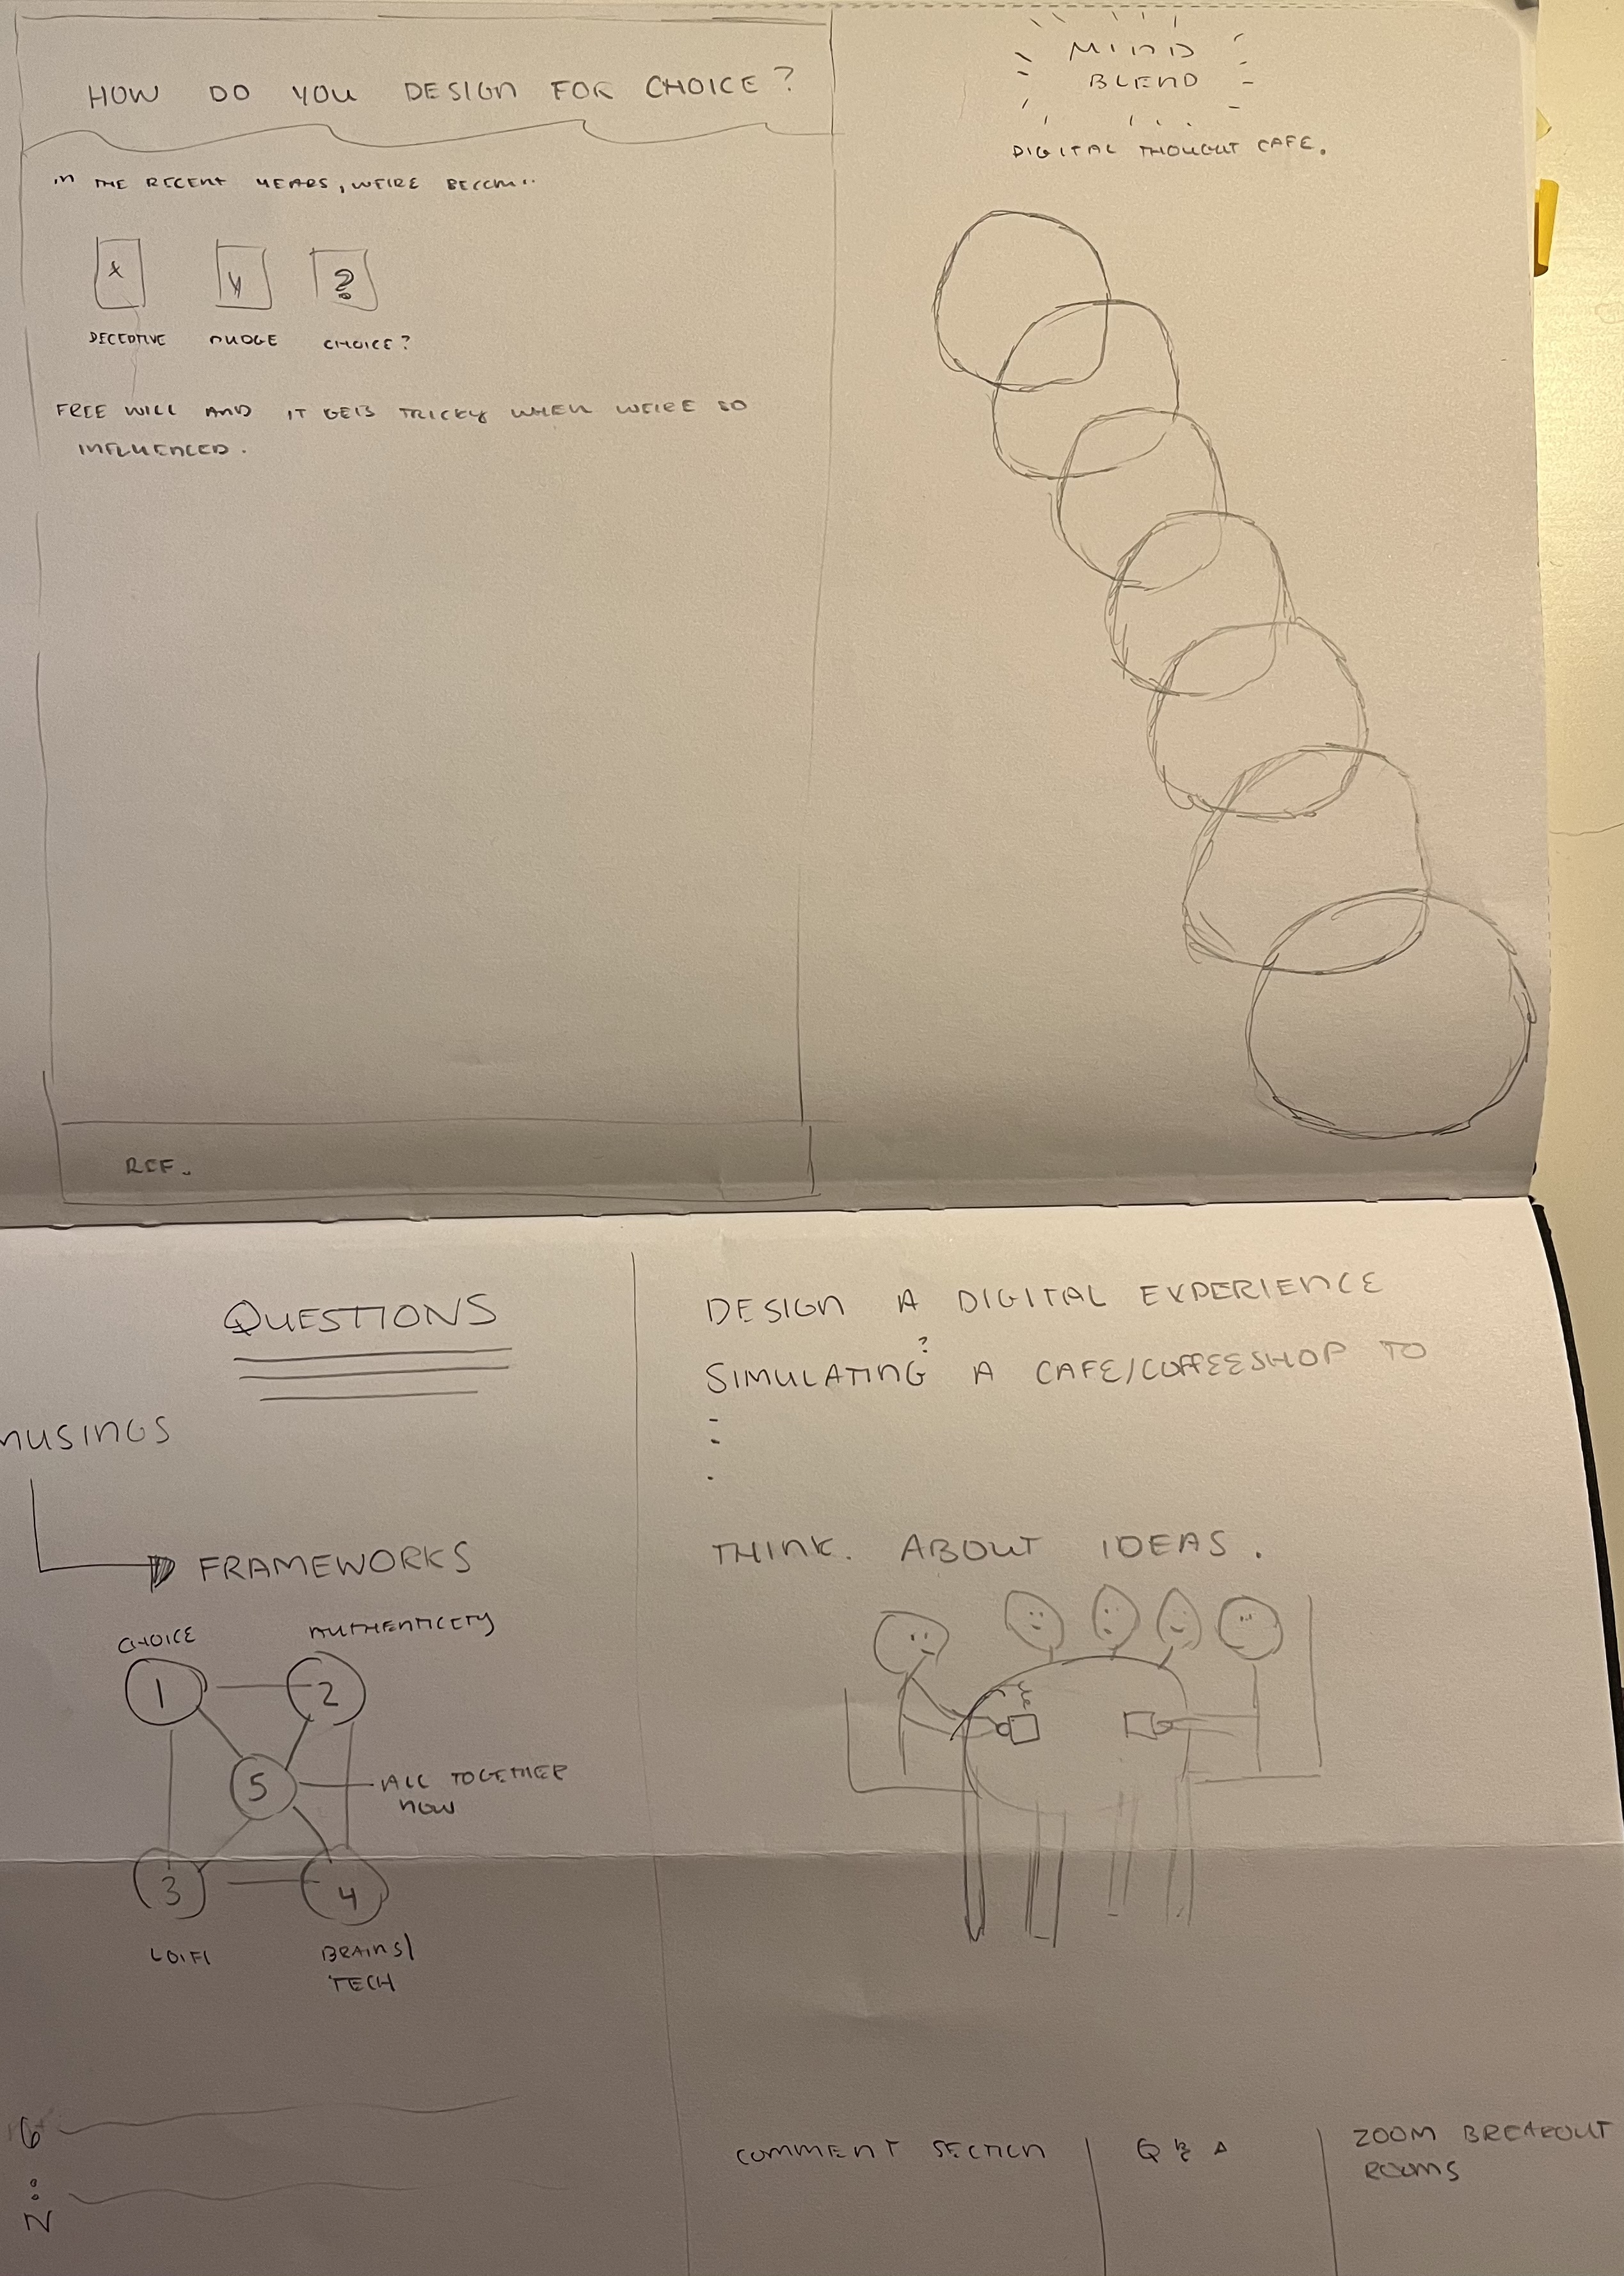 HOW DO YOU DESIGN FOR CHOICE?
IN THE RECENT YEARS, WE'RE BECOM..
X
Y
?
DECEPTIVE
NUDGE
CHOICE?
FREE WILL AND IT GETS TRICKY WHEN WE'RE SO
INFLUENCED.
REF.
MIND
BLEND
DIGITAL THOUGHT CAFE.
QUESTIONS
MUSINGS
FRAMEWORKS
CHOICE
AUTHENTICETY
1
2
5
ALL TOGETHER
NOW
3
4
LOIFI
BRAINS/
TECH
6
:
N
DESIGN A DIGITAL EXPERIENCE
?
SIMULATING A CAFE/COFFEESHOP TO
-
-
.
THINK. ABOUT IDEAS.
COMMENT SECTION
Q & A
ZOOM BREAKOUT
ROOMS